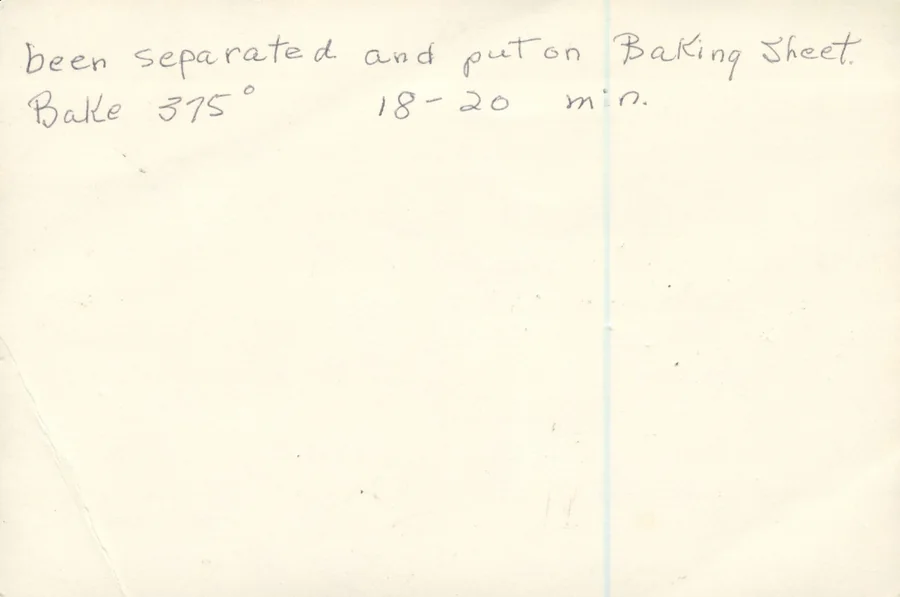 been separated and put on Baking Sheet.
Bake 375° 18-20 min.